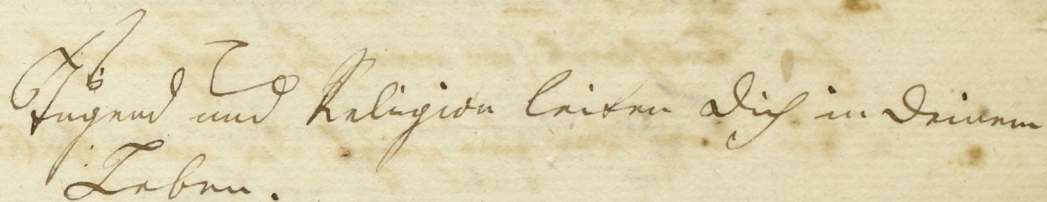 Tugend und Religion leiten Dich in Deinem
Leben.